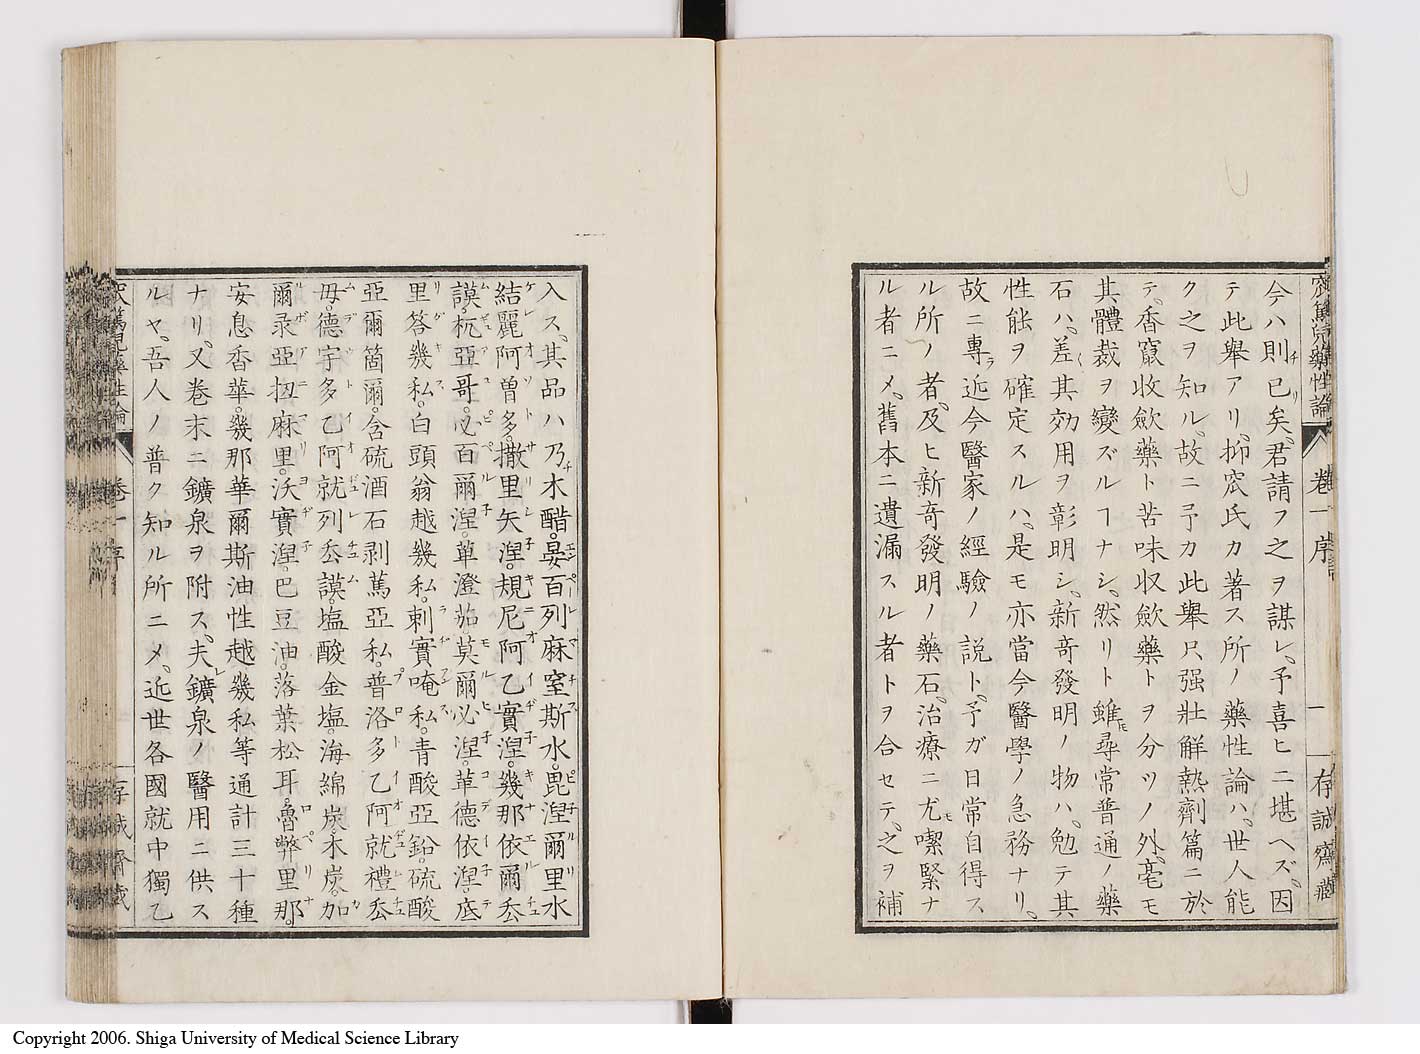 窊篤兒藥性論 卷一 序 一 存誠齋藏
今ハ則已矣、君請フ之ヲ謀レ、予喜ヒニ堪ヘズ、因
テ此擧アリ、抑窊氏カ著ス所ノ藥性論ハ、世人能
ク之ヲ知ル、故ニ予カ此擧只强壯解熱劑篇ニ於
テ、香竄收斂藥ト苦味収斂藥トヲ分ツノ外、毫モ
其體裁ヲ變ズルヿナシ、然リト雖尋常普通ノ藥
石ハ、差其効用ヲ彰明シ、新奇發明ノ物ハ、勉テ其
性能ヲ確定スルハ、是モ亦當今醫學ノ急務ナリ、
故ニ專近今醫家ノ經驗ノ説ト、予ガ日常自得ス
ル所ノ者、及ヒ新奇發明ノ藥石、治療ニ尤喫緊ナ
ル者ニメ、舊本ニ遺漏スル者トヲ合セテ、之ヲ補
入ス、其品ハ乃木醋。晏百列麻窒斯水。毘涅爾里水
結麗阿曽多。撒里矢涅。規尼阿乙實涅。幾那依爾叒
謨。杭亞哥。必百爾涅。蓽澄茄莫爾必涅。革德依涅。底
里答幾私。白頭翁越幾私。刺賓唵私。青酸亞鉛。硫酸
亞爾箇爾。含硫酒石剥篤亞私。普洛多乙阿就禮叒
毋。德宇多乙阿就列叒謨。塩酸金塩。海綿炭。木炭。加
爾彔亞扨麻里。沃實涅。巴豆油。落葉松耳。魯弊里那。
安息香華。幾那華爾斯油性越幾私等通計三十種
ナリ、又卷末ニ鑛泉ヲ附ス、夫鑛泉ノ醫用ニ供ス
ルヤ、吾人ノ普ク知ル所ニメ、近世各國就中獨乙
篤兒藥性論 卷一 序 存誠齋藏
Copyright 2006. Shiga University of Medical Science Library